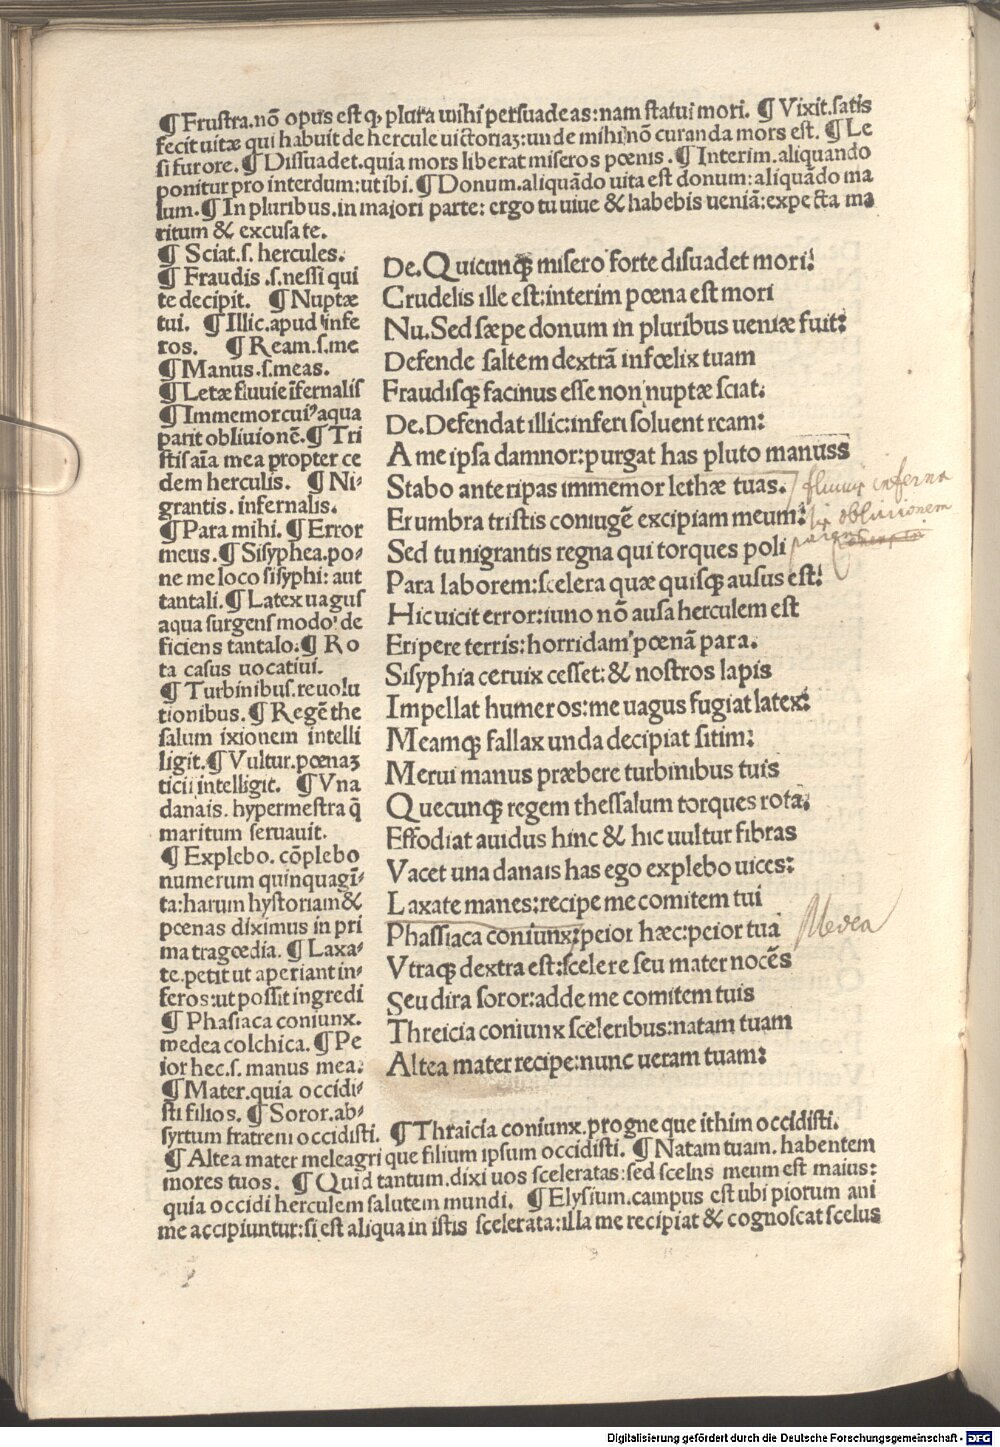 ¶ Frustra.nō opus est q̨ plura mihi persuadeas:nam statui mori. ¶ Vixit.satis
fecit uitæ qui habuit de hercule uictoriaꝫ:unde mihi nō curanda mors est. ¶ Le
si furore. ¶ Dissuadet.quia mors liberat miseros pœnis. ¶ Interim.aliquando
ponitur pro interdum:ut ibi. ¶ Donum.aliquādo uita est donum:aliquādo ma
lum. ¶ In pluribus.in maiori parte: ergo tu uiue & habebis ueniā:expecta ma
ritum & excusate.
¶ Sciat.s. hercules.
¶ Fraudis .s.nessi qui
te decipit. ¶ Nuptæ
tui. ¶ Illic.apud infe
ros. ¶ Ream.s.me
¶ Manus.s.meas.
¶ Letæ fluuie īfernalis
¶ Immemor cui⁹ aqua
parit obliuionē. ¶ Tri
stis aīa mea propter ce
dem herculis. ¶ Ni-
grantis. infernalis.
¶ Para mihi. ¶ Error
meus. ¶ Sisyphea.po-
ne me loco sisyphi: aut
tantali. ¶ Latex uagus
aqua surgens modo: de
ficiens tantalo. ¶ Ro
ta casus uocatiui.
¶ Turbinibus.reuolu
tionibus. ¶ Regē the
salum ixionem intelli
ligit. ¶ Vultur.pœnaꝫ
ticii intelligit. ¶ Vna
danais. hypermestra q̄
maritum seruauit.
¶ Explebo. cōplebo
numerum quinquagī-
ta:harum hystoriam &
pœnas diximus in pri
ma tragœdia. ¶ Laxa-
te.petit ut aperiant in-
feros:ut possit ingredi
¶ Phasiaca coniunx.
medea colchica. ¶ Pe
ior hec.s. manus mea.
¶ Mater.quia occidi-
sti filios. ¶ Soror.ab-
De. Quicunq̨ misero forte disuadet mori:
Crudelis ille est:interim pœna est mori
Nu. Sed sæpe donum in pluribus ueniæ fuit:
Defende saltem dextrā infœlix tuam
Fraudisq̨ facinus esse non nuptæ sciat.
De. Defendat illic:inferi soluent ream:
A me ipsa damnor:purgat has pluto manuss
Stabo ante ripas immemor lethæ tuas.
Et umbra tristis coniugē excipiam meum:
Sed tu nigrantis regna qui torques poli
Para laborem:scelera quæ quisq̨ ausus est:
Hic uicit error:iuno nō ausa herculem est
Eripere terris:horridam pœnā para.
Sisyphia ceruix cesset: & nostros lapis
Impellat humeros:me uagus fugiat latex:
Meamq̨ fallax unda decipiat sitim:
Merui manus præbere turbinibus tuis
Quecunq̨ regem thessalum torques rota:
Effodiat auidus hinc & hic uultur fibras
Vacet una danais has ego explebo uices:
Laxate manes:recipe me comitem tui
Phassiaca coniunx:peior hæc:peior tua
Vtraq̨ dextra est:scelere seu mater nocēs
Seu dira soror:adde me comitem tuis
Threicia coniunx sceleribus:natam tuam
Altea mater recipe:nunc ueram tuam:
fluuij inferna
oblivionem
Medea
syrtum fratrem occidisti. ¶ Thraicia coniunx.progne que ithim occidisti.
¶ Altea mater meleagri que filium ipsum occidisti. ¶ Natam tuam. habentem
mores tuos. ¶ Quid tantum.dixi uos sceleratas:sed scelus meum est maius:
quia occidi herculem salutem mundi. ¶ Elysium.campus est ubi piorum ani
me accipiuntur:si est aliqua in istis scelerata:illa me recipiat & cognoscat scelus
Digitalisierung gefördert durch die Deutsche Forschungsgemeinschaft - DFG